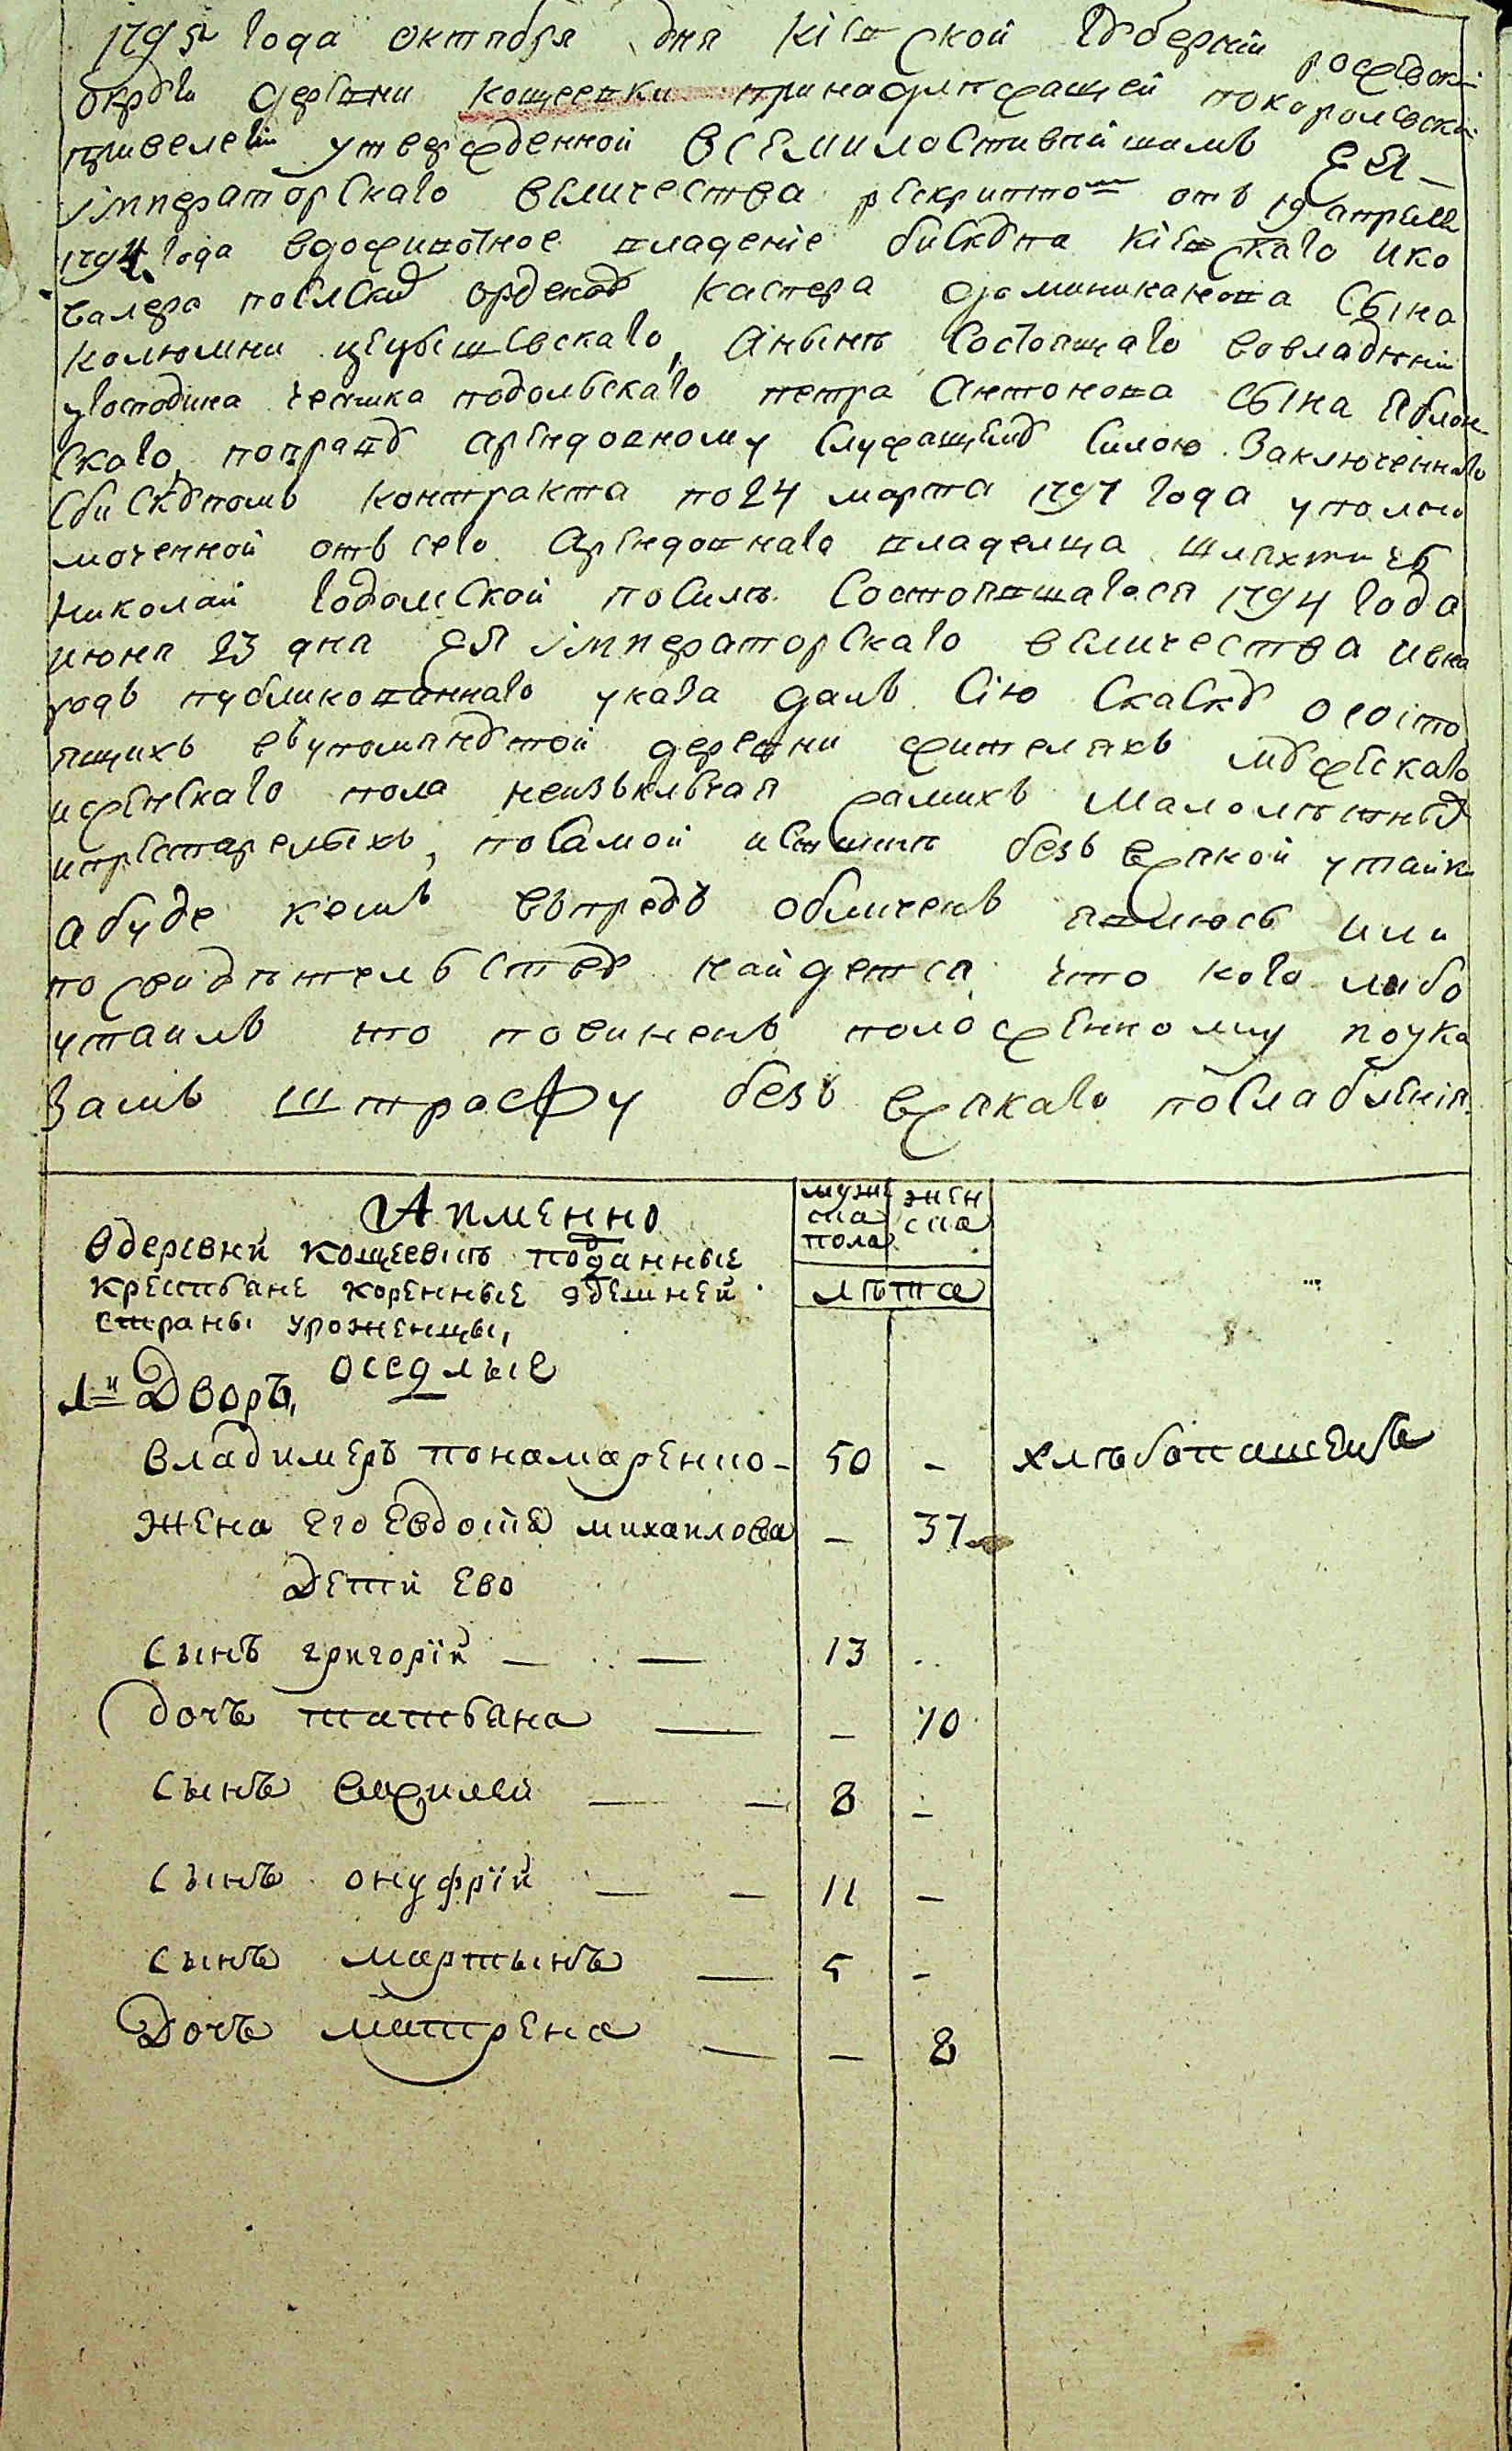 1795 года октября дня Кіевской Губерніи
округи деревни Кощеевки принадлежащей по королевской
привелегіи утвержденной всемилостивейшимъ ЕЯ
імператорскаго величества рескриптомъ отъ 19 апреля
1794 года вдоживотное владеніе бискупа Кіевскаго и ка
валера полскихъ орденовъ Каспера доминиканова сына
колюмни цецишевскаго, а нынѣ состоящаго во владѣніи
у господина чешика подольскаго петра антонова сына Яблон
скаго, по праву арендовному служащему силою заключеннаго
с бискупомъ контракта по 24 марта 1797 года уполно
моченной отъ сего арендовнаго владелца шляхтичь
Николай годомской по силѣ состоявшагося 1794 года
июня 23 дня ЕЯ імператорскаго величества и в на
родъ публикованнаго указа далъ сію скаску о состо
ящихъ въ упомянутой деревни жителяхъ мужескаго
и женскаго пола неизъключая самихъ малолѣтныхъ
и престарелыхъ, по самой истиннѣ безъ всякой утайки
а буде кемъ въпредъ обличенъ явлюсь или
по свидѣтельству найдется что кого либо
утаилъ то повиненъ положенному по ука
замъ штрафу безъ всякаго послабленія.
А имЕнно
муже
ска
пола
жен
ска
Вдеревни кощеевкѣ подданные
крестьяне коренные здешней
страны уроженцы,
лѣта
оседлые
1й Дворъ,
Владимеръ понамаренко - 50 - хлѣбопашецъ
жена его Евдокия михаилова - 37
Дети Ево
сынъ григорїй — — 13 ..
дочь татьяна — - 10
сынъ василей — — 8 -
сынъ онуфрїй — — 11 -
сынъ мартынъ — 5 -
Дочь матрена — - 8